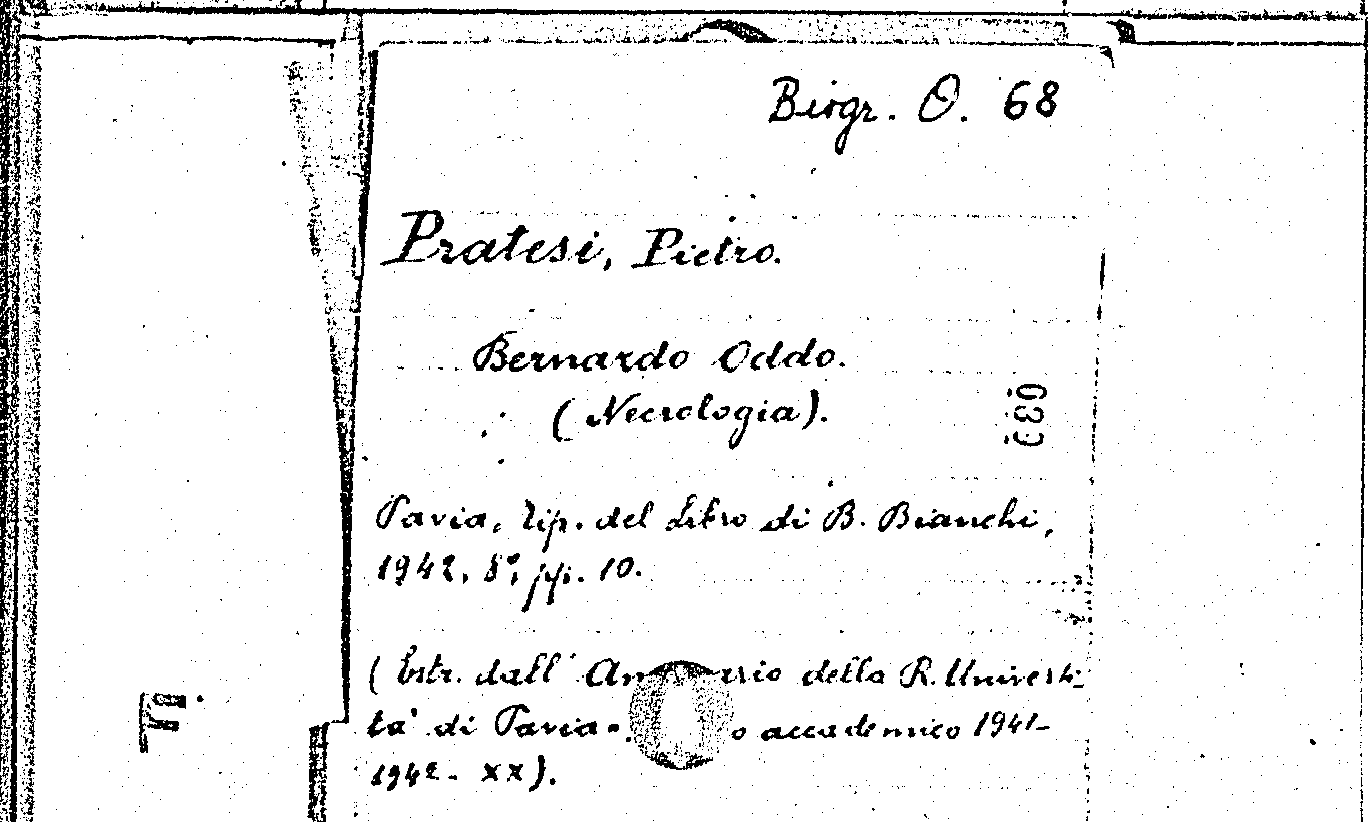 Biogr. O. 68
Pratesi, Pietro.
Bernardo Oddo.
(Necrologia).
Pavia, Tip. del Libro di B. Bianchi,
1942. 8°, pp. 10.
(Estr. dall' An ario della R. Universi-
tà di Pavia - o accademico 1941-
1942 - XX).